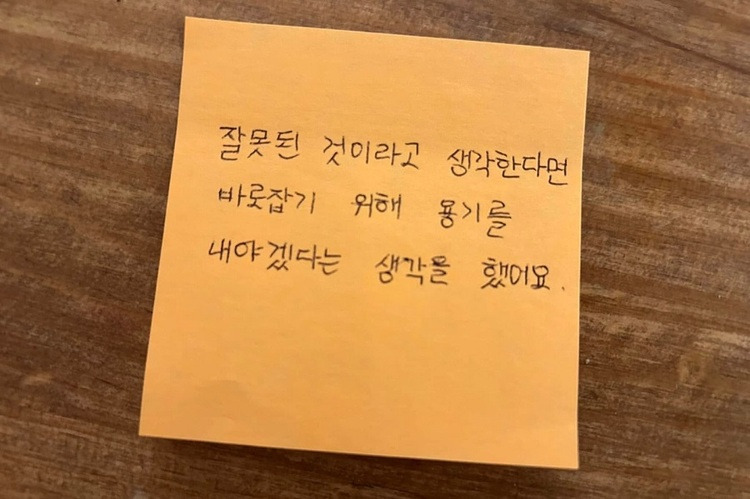 잘못된 것이라고 생각한다면
바로잡기 위해 용기를
내야겠다는 생각을 했어요.